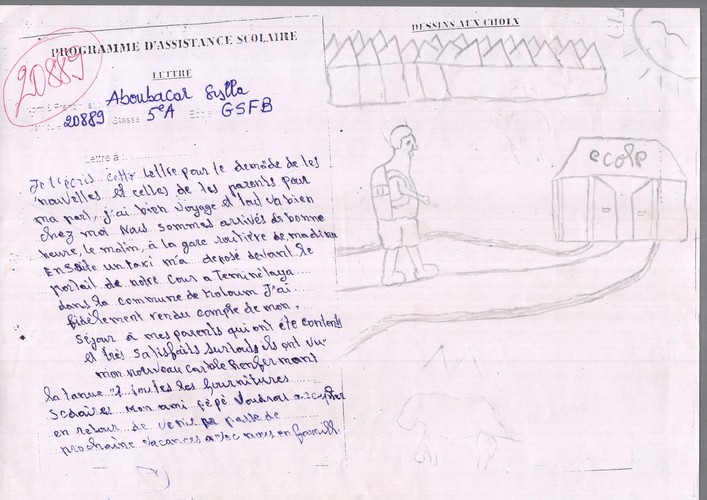 PROGRAMME D'ASSISTANCE SCOLAIRE
LETTRE
20889
Aboubacar Sylla
20889 Classe 5eA Ecole GSFB
Lettre à
Je t'écris cette lettre pour le demãde de tes
nouvelles et celles de tes parents pour
ma part, j'ai bien voyagé et tout va bien
chez moi Nous sommes arrivés de bonne
heure, le matin, à la gare routière de madina
Ensuite un taxi m'a déposé devant le
portail de notre Cour a Teminetaya
dans la commune de matoum J'ai
fidèlement rendu compte de mon,
séjour à mes parents qui ont été contents
et très satisfaits surtout ils ont vu
mon nouveau cartable Renfermant
la tenue et toutes les fournitures
scolaires Mon ami pépé voudrait accepter
en retour de venir passe de
prochaine vacances avec nous en famille.
DESSINS AUX CHOIX
ecole